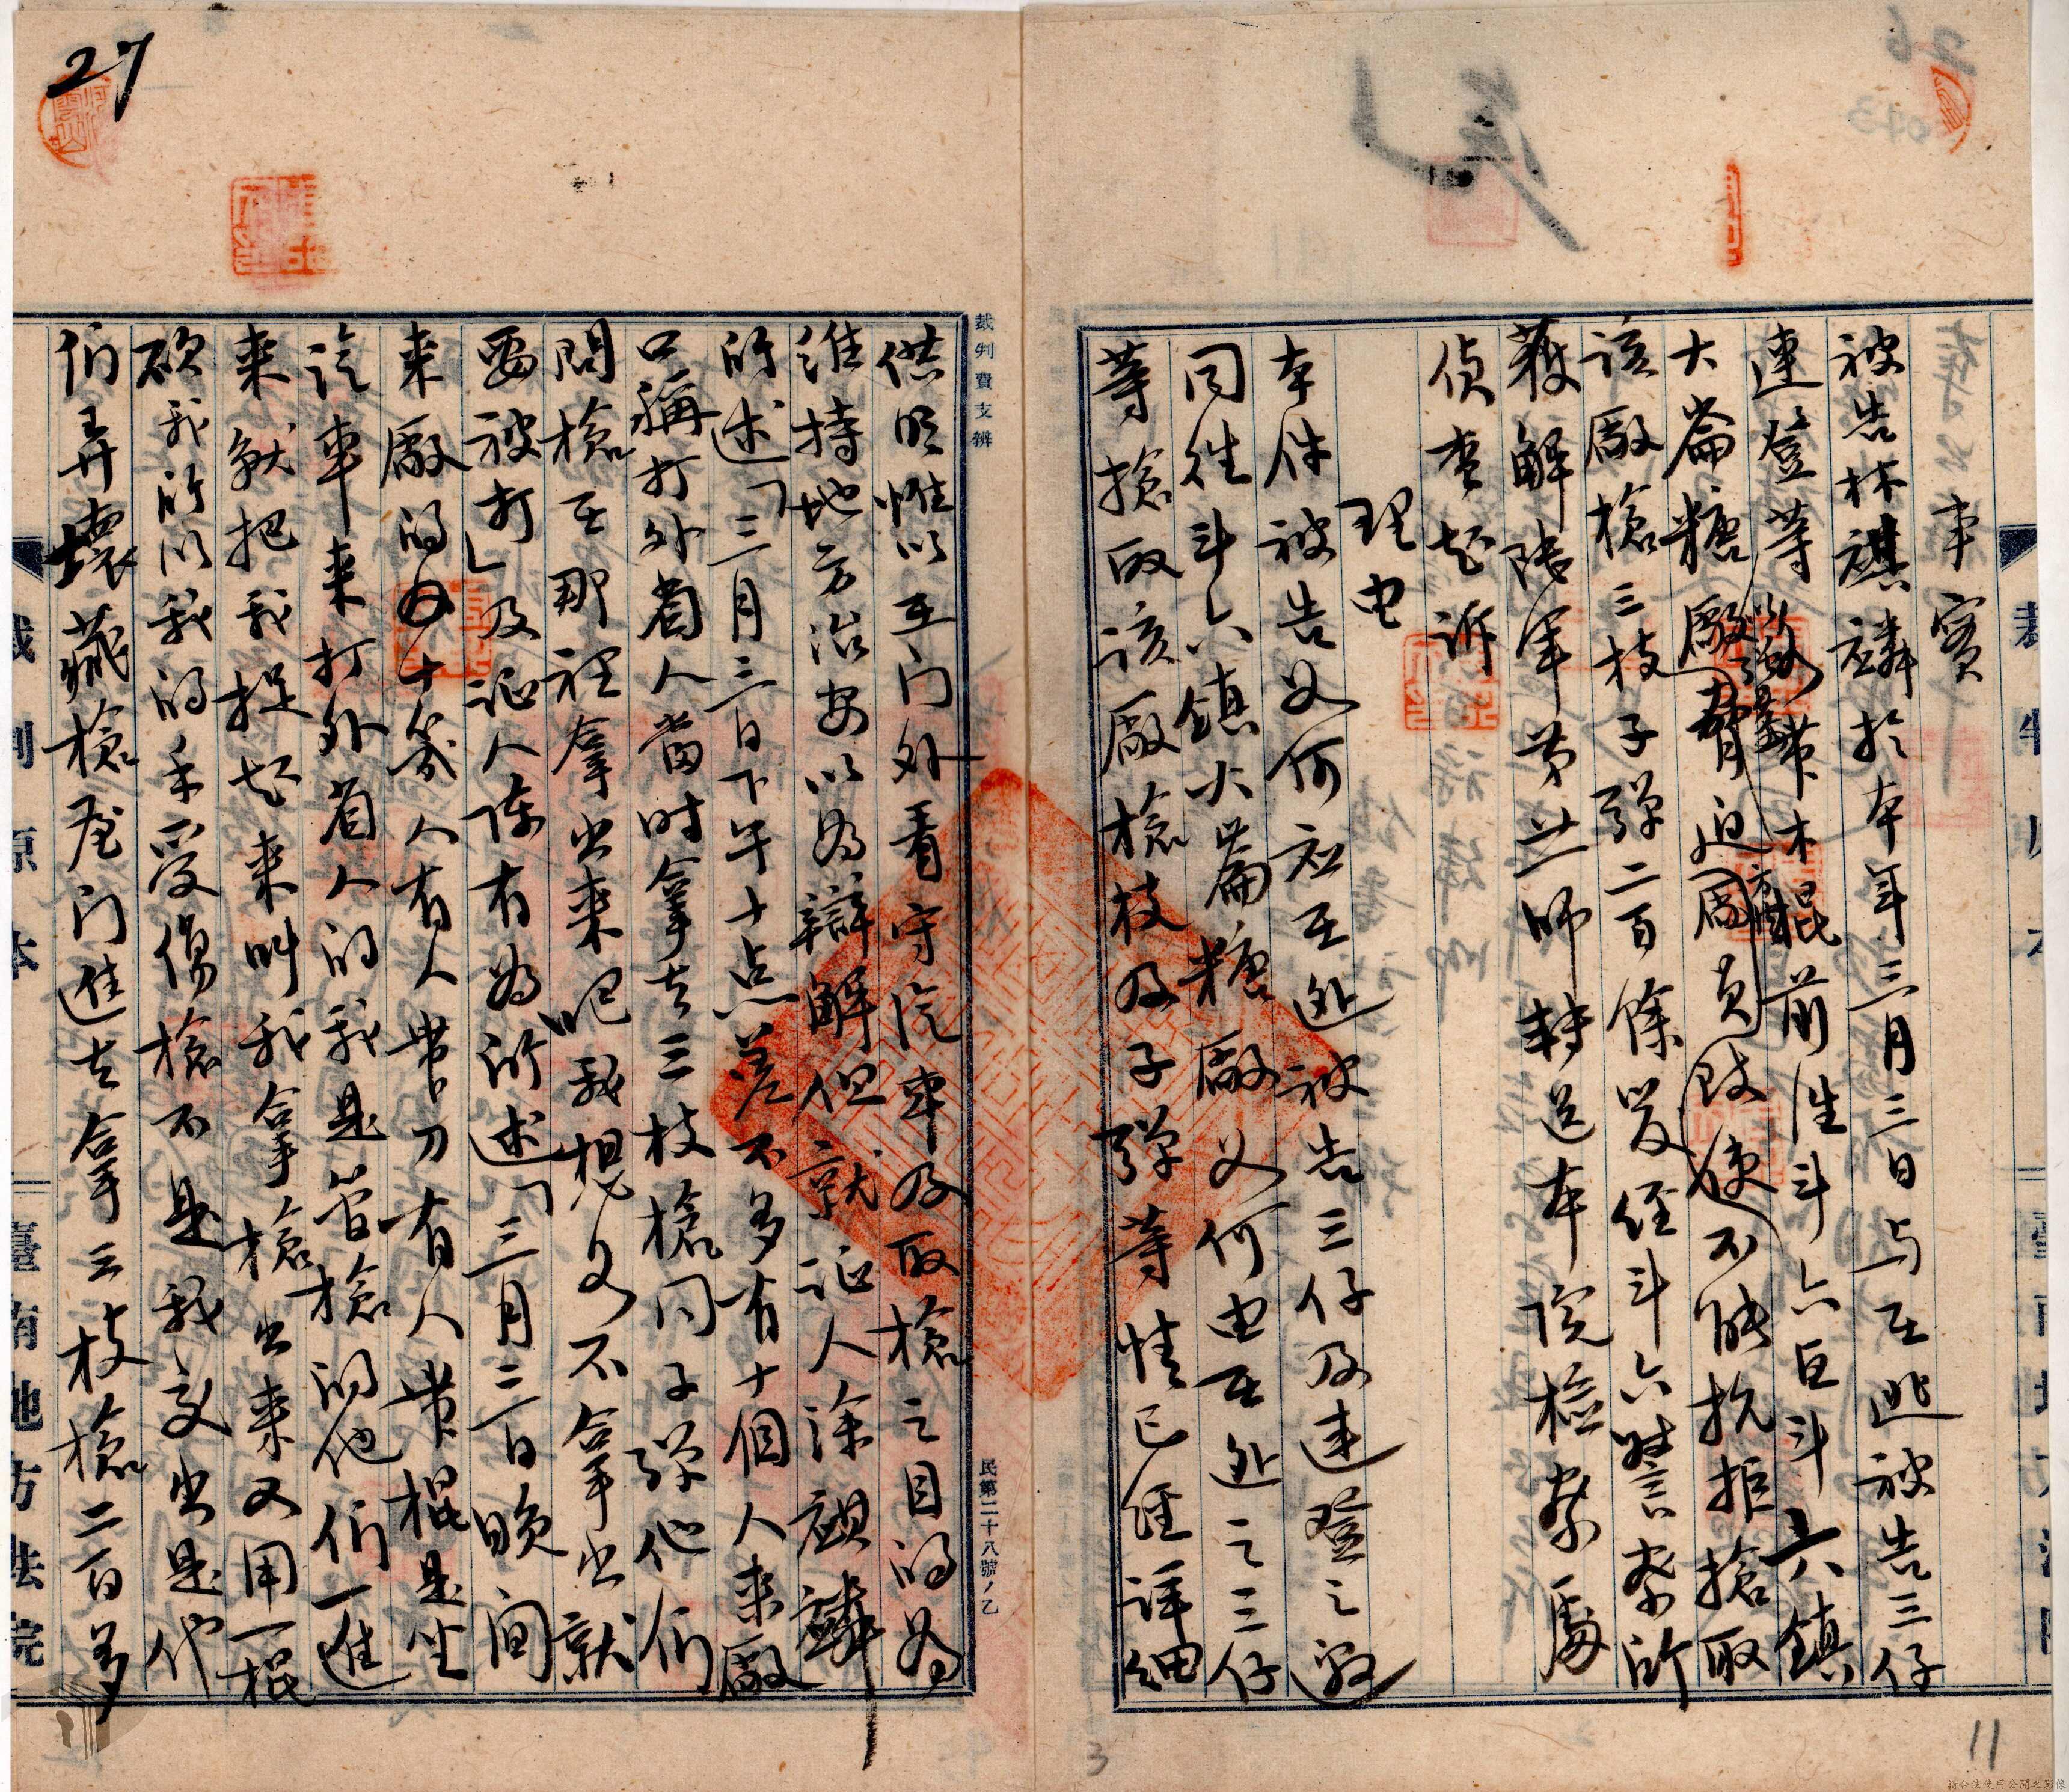 事實
被告林祺麟於本年三月三日与在逃被告三仔
連登等攜帶木棍前往斗六区斗六鎮
大崙糖廠脅迫廠員致使不能抗拒搶取
該廠槍三枝子彈二百餘發經斗六警察所
獲解陸軍第廿一師轉送本院檢察處
偵查起訴
理由
本件被告如何应在逃被告三仔及連登之邀
同往斗六鎮大崙糖廠如何由在逃之三仔
等搶取該廠槍枝及子彈等情已經詳細
供明惟以在门外看守汽車及取槍之目的为
維持地方治安以为辯解但就证人涂祺麟
所述「三月三日下午十点差不多有十個人來廠
口稱打外省人當时拿去三枝槍同子彈他们
問槍在那裡拿出來呢我想如不拿出就
要被打」及证人陈有为所述「三月三日晚间
來廠的有十幾人有人帶刀有人帶棍是坐
汽車來打外省人的我是管槍的他们一進
來就把我捉起來叫我拿槍出來又用一棍
砍我所以我的手受傷槍不是我交出是他
们弄壞藏槍屋门進去拿三枝槍二百多
裁判費支辨
民第二十八號ノ乙
裁判原本
臺南地方法院
27
26
11
3
請合法使用公開之影像